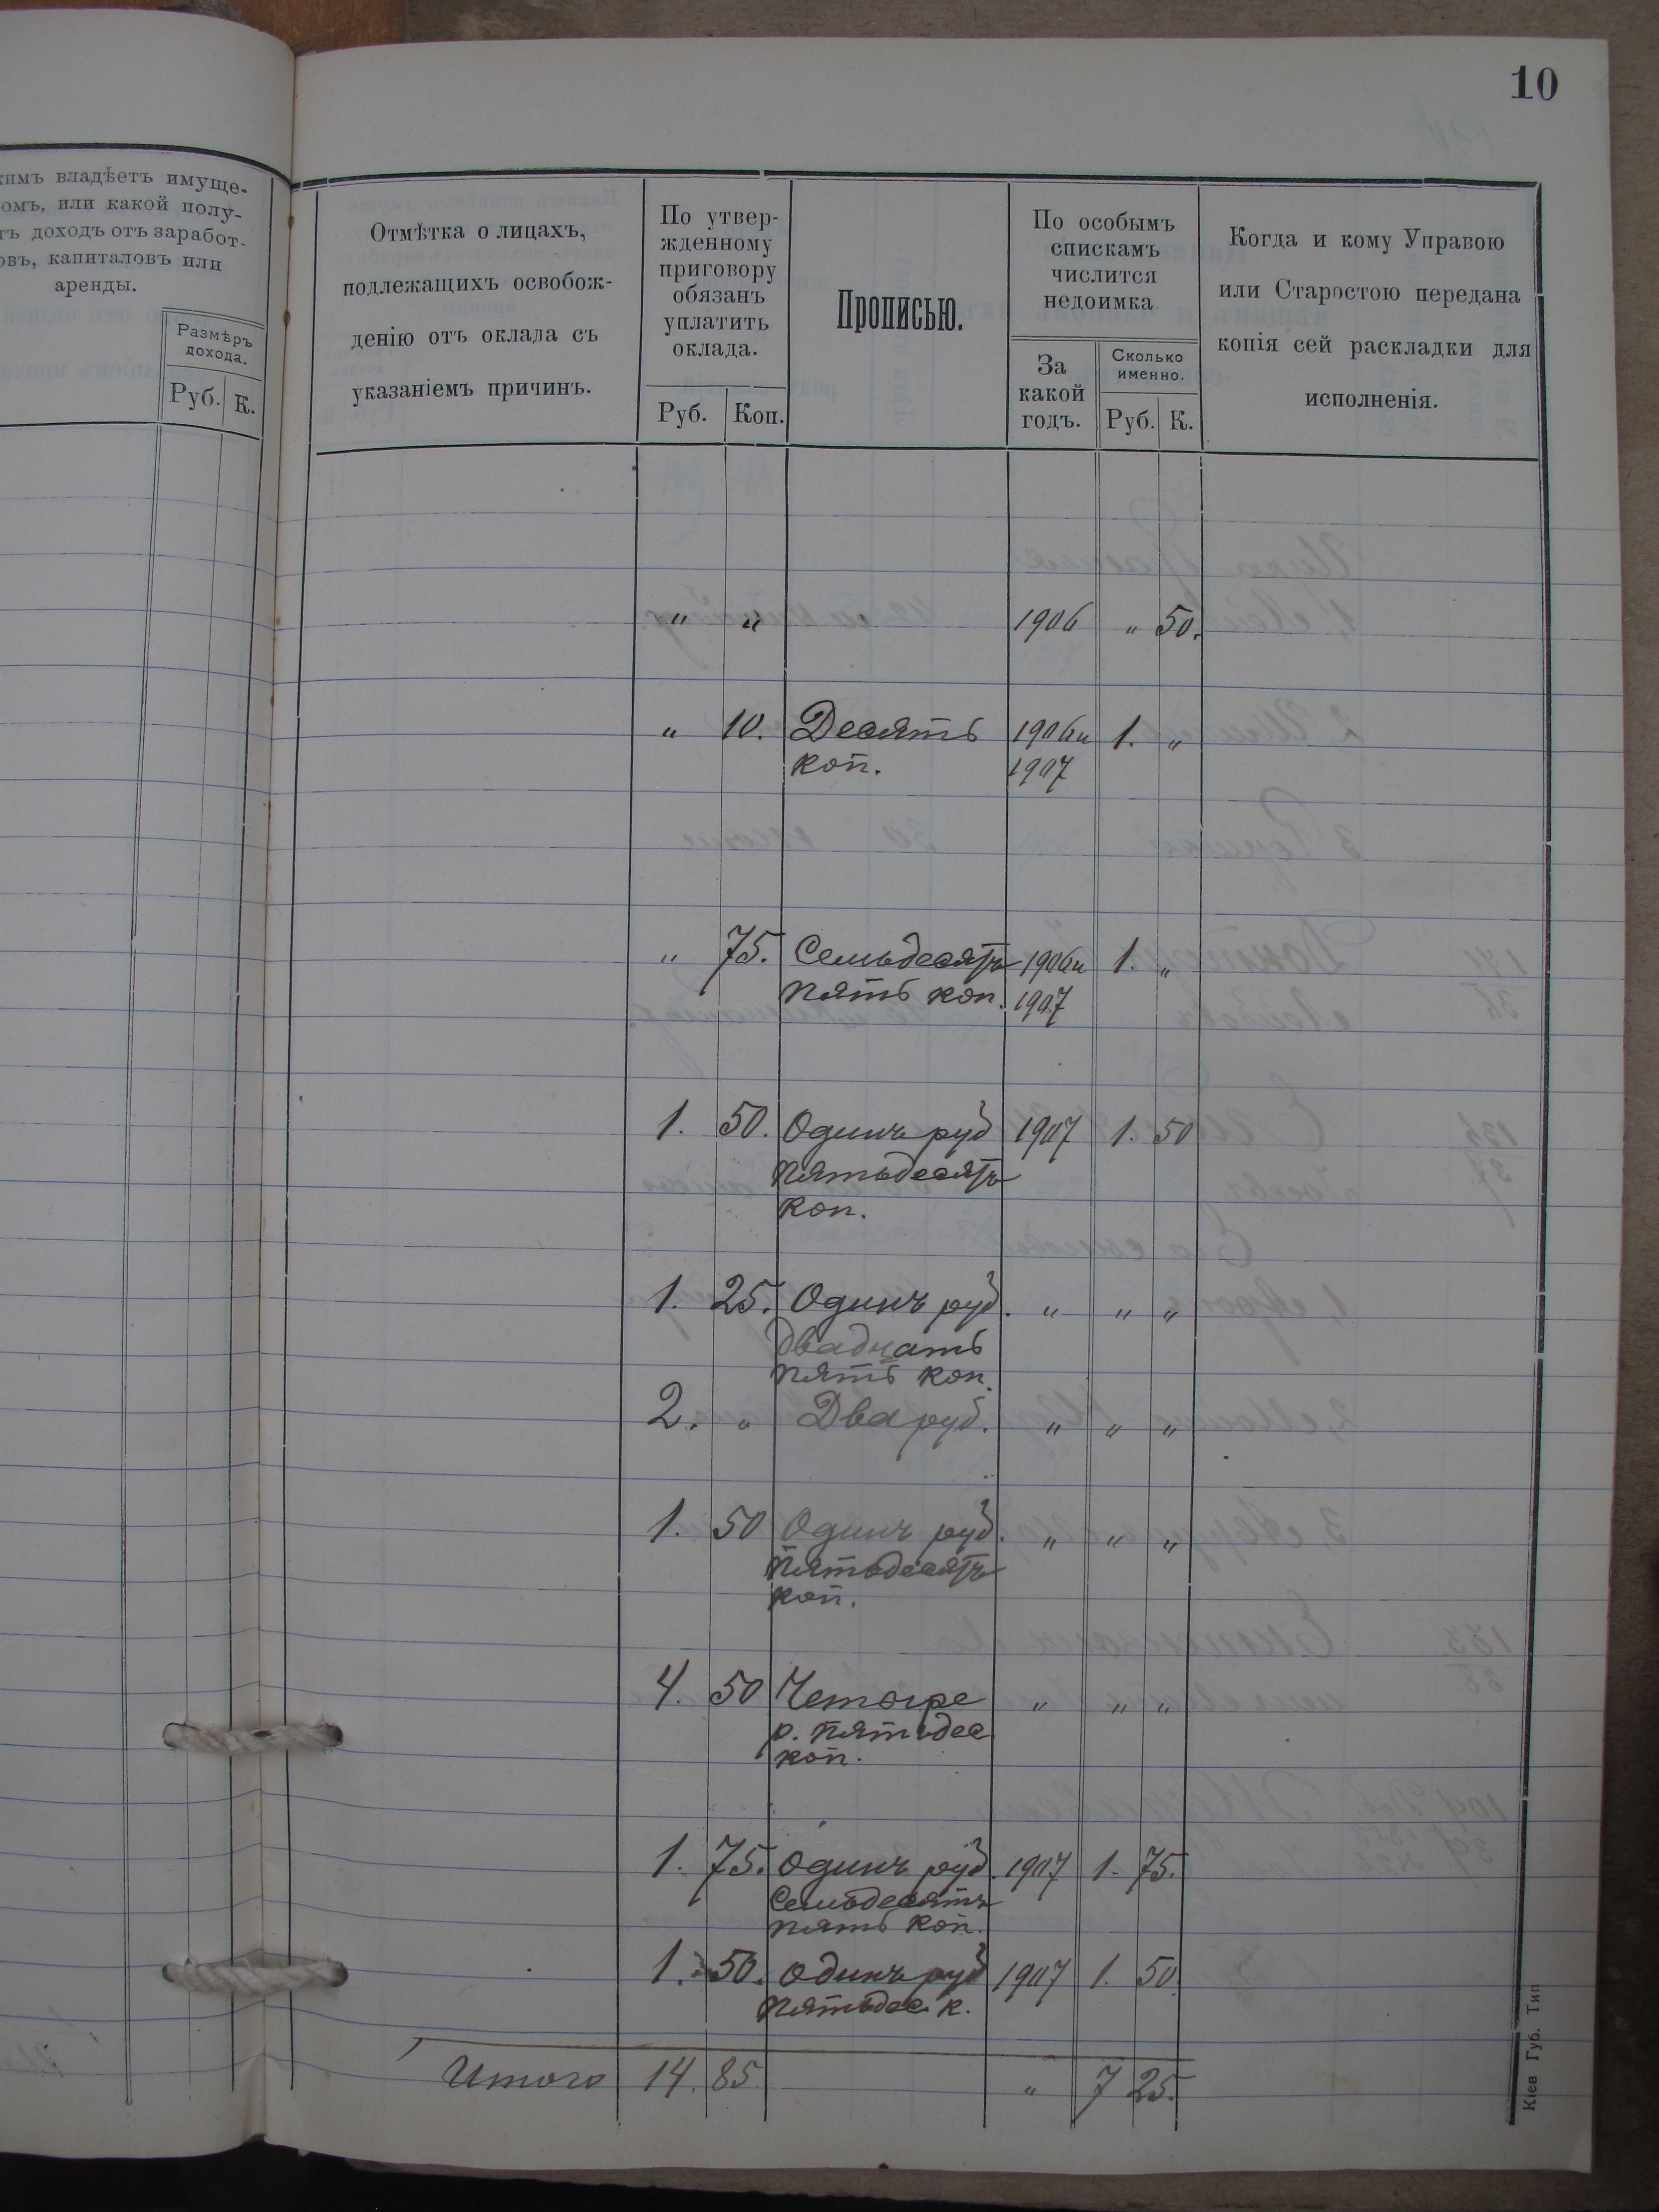 10
кимъ владѣетъ имуще-
омъ, или какой полу-
тъ доходъ отъ заработ-
овъ, капиталовъ или
аренды.
Размѣръ
дохода.
Руб. К.
Отмѣтка о лицахъ,
подлежащихъ освобож-
денію отъ оклада съ
указаніемъ причинъ.
По утвер-
жденному
приговору
обязанъ
уплатить
оклада.
Руб. Коп.
Прописью.
По особымъ
спискамъ
числится
недоимка
За
какой
годъ.
Сколько
именно.
Руб. К.
Когда и кому Управою
или Старостою передана
копія сей раскладки для
исполненія.
" " 1906 " 50.
" 10. Десять 1906 и 1. "
коп. 1907
" 75. Семьдесятъ 1906 и 1. "
пять коп. 1907
1. 50. Одинъ руб 1907 1. 50
пятьдесятъ
коп.
1. 25. Одинъ руб. " " "
двадцать
пять коп.
2. " Два руб. " " "
1. 50 Одинъ руб. " " "
пятьдесятъ
коп.
4. 50 Четыре " " "
р. пятьдес
коп.
1. 75. Одинъ руб. 1907 1. 75.
семьдесятъ
пять коп.
1. 50. Одинъ руб 1907 1. 50.
пятьдес. к.
Итого 14. 85. " 7 25.
Кіев Губ. Тип